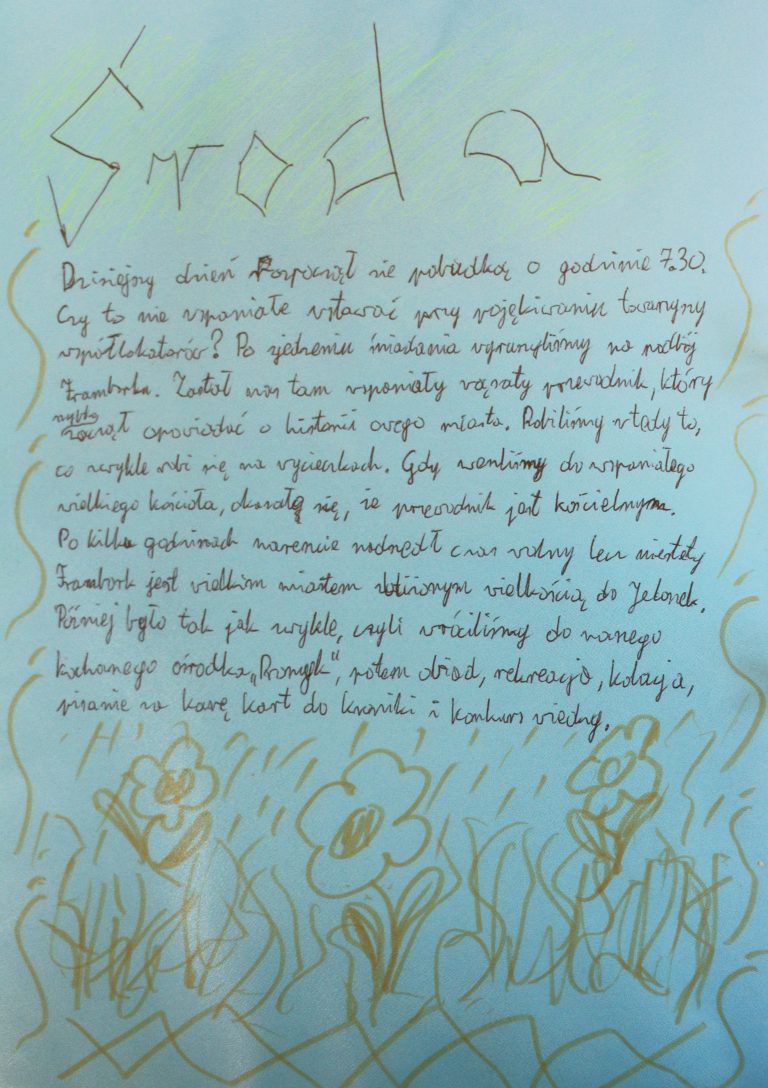 Środa
Dzisiejszy dzień rozpoczął się pobudką o godzinie 7.30.
Czy to nie wspaniałe wstawać przy pojękiwaniu towarzyszy
współlokatorów? Po zjedzeniu śniadania wyruszyliśmy na podbój
Fromborka. Zastał nas tam wspaniały wąsaty przewodnik, który
szybko
zaczął opowiadać o historii owego miasta. Robiliśmy wtedy to,
co zwykle robi się na wycieczkach. Gdy weszliśmy do wspaniałego
wielkiego kościoła, okazało się, że przewodnik jest kościelnym.
Po kilku godzinach nareszcie nadszedł czas wolny lecz niestety
Frombork jest wielkim miastem zbliżonym wielkością do Jelonek.
Później było tak jak zwykle, czyli wróciliśmy do naszego
kochanego ośrodka „Promyk", potem obiad, rekreacja, kolacja,
pisanie za karę kart do kroniki i konkurs wiedzy.